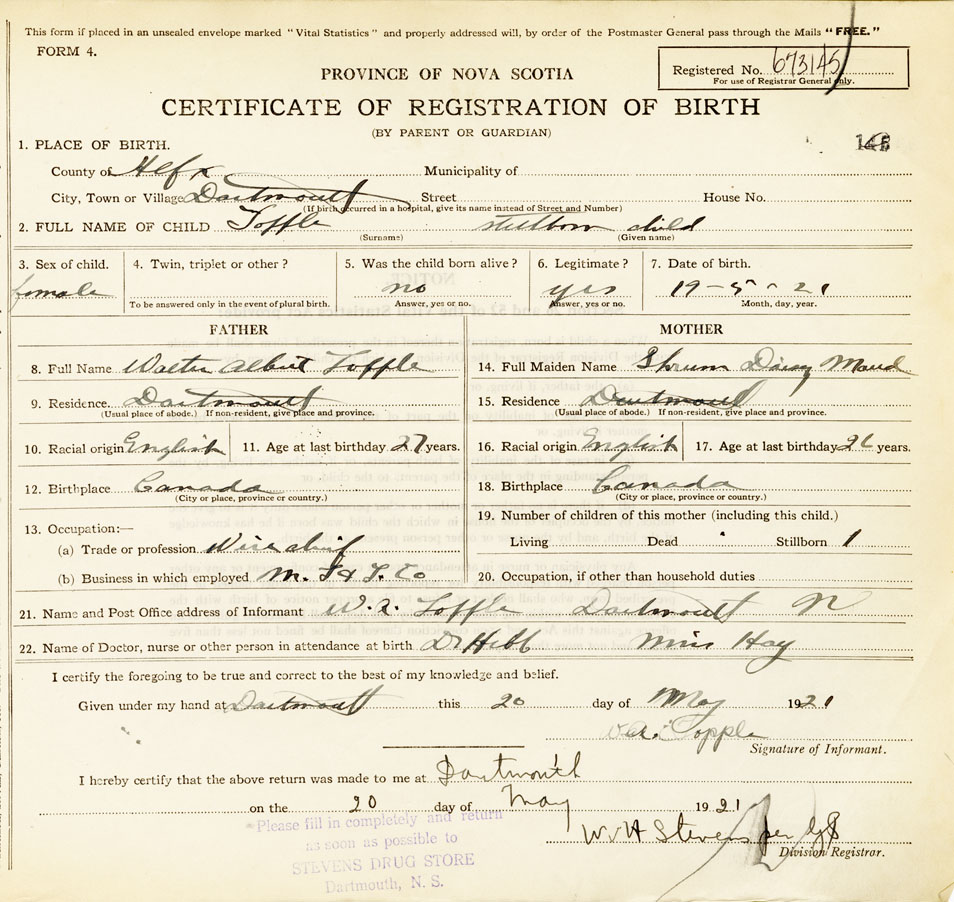 This form if placed in an unsealed envelope marked "Vital Statistics" and properly addressed will, by order of the Postmaster General pass through the Mails "FREE."
FORM 4.
Registered No. 673145
For use of Registrar General only.
PROVINCE OF NOVA SCOTIA
CERTIFICATE OF REGISTRATION OF BIRTH
(BY PARENT OR GUARDIAN)
1. PLACE OF BIRTH.
County of Hlfx Municipality of
City, Town or Village Dartmouth Street House No.
(If birth occurred in a hospital, give its name instead of Street and Number)
2. FULL NAME OF CHILD Topple stillborn child
(Surname) (Given name)
3. Sex of child. 4. Twin, triplet or other? 5. Was the child born alive? 6. Legitimate? 7. Date of birth.
female no yes 19-5-21
To be answered only in the event of plural birth. Answer, yes or no. Answer, yes or no. Month, day, year.
FATHER MOTHER
8. Full Name Walter Albert Topple 14. Full Maiden Name Shrum Daisy Maud
9. Residence Dartmouth 15. Residence Dartmouth
(Usual place of abode.) If non-resident, give place and province. (Usual place of abode.) If non-resident, give place and province.
10. Racial origin English 11. Age at last birthday 27 years. 16. Racial origin English 17. Age at last birthday 26 years.
12. Birthplace Canada 18. Birthplace Canada
(City or place, province or country.) (City or place, province or country.)
13. Occupation:— 19. Number of children of this mother (including this child.)
(a) Trade or profession Wire chief Living Dead Stillborn 1
(b) Business in which employed M. T & T. Co 20. Occupation, if other than household duties
21. Name and Post Office address of Informant W. A. Topple Dartmouth N
22. Name of Doctor, nurse or other person in attendance at birth Dr Hebb Miss Hay
I certify the foregoing to be true and correct to the best of my knowledge and belief.
Given under my hand at Dartmouth this 20 day of May 1921
W. A. Topple
Signature of Informant.
I hereby certify that the above return was made to me at Dartmouth
on the 20 day of May 1921
Please fill in completely and return
as soon as possible to
STEVENS DRUG STORE
Dartmouth, N. S.
W H Stevens per
Division Registrar.